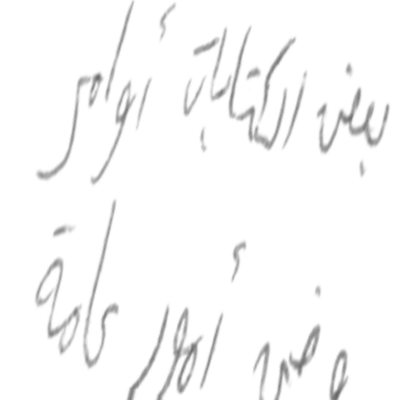 بعض الكتابة أوامر
وفي أمور عامة